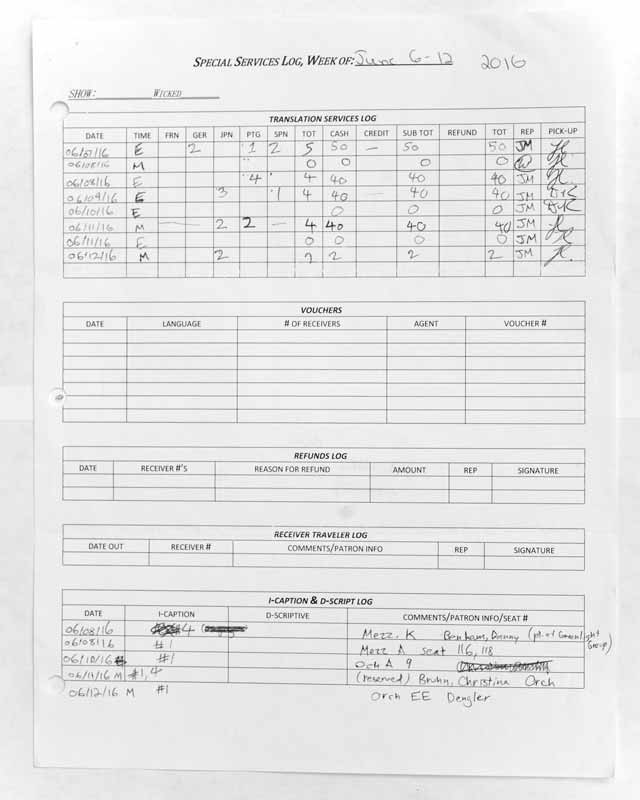 SPECIAL SERVICES LOG, WEEK OF: June 6-12 2016
SHOW: WICKED
TRANSLATION SERVICES LOG
DATE TIME FRN GER JPN PTG SPN TOT CASH CREDIT SUB TOT REFUND TOT REP PICK-UP
06/07/16 E 2 1 2 5 50 — 50 50 JM
06/08/16 M 0 0 0 0
06/08/16 E 4 4 40 40 40 JM
06/09/16 E 3 1 4 40 — 40 40 JM
06/10/16 E 0 0 0 JM
06/11/16 M — 2 2 — 4 40 40 40 JM
06/11/16 E 0 0 0 0 JM
06/12/16 M 2 2 2 2 2 JM
VOUCHERS
DATE LANGUAGE # OF RECEIVERS AGENT VOUCHER #
REFUNDS LOG
DATE RECEIVER #'S REASON FOR REFUND AMOUNT REP SIGNATURE
RECEIVER TRAVELER LOG
DATE OUT RECEIVER # COMMENTS/PATRON INFO REP SIGNATURE
I-CAPTION & D-SCRIPT LOG
DATE I-CAPTION D-SCRIPTIVE COMMENTS/PATRON INFO/SEAT #
06/08/16 4 Mezz. K Benham, Danny (pt. of Greenlight Group)
06/08/16 #1 Mezz A seat 116, 118
06/10/16 #1 Orch A 9
06/11/16 M #1, 4 (reserved) Bruhn, Christina Orch
06/12/16 M #1 Orch EE Dengler